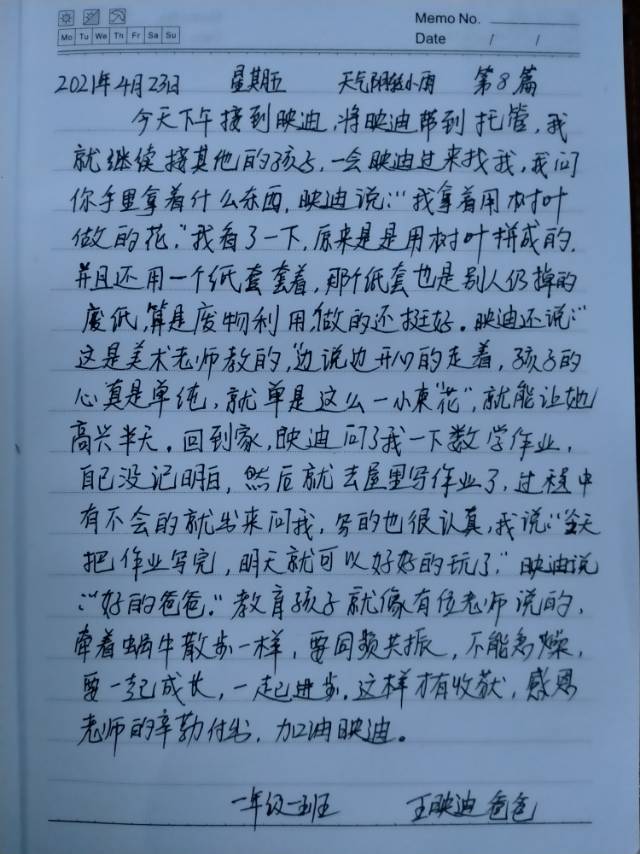 Memo No.
Mo Tu We Th Fr Sa Su
Date / /
2021年4月23日 星期五 天气阴转小雨 第8篇
今天下午接到映迪,将映迪带到托管,我
就继续接其他的孩子,一会映迪过来找我,我问
你手里拿着什么东西,映迪说:“我拿着用树叶
做的花,”我看了一下,原来是是用树叶拼成的,
并且还用一个纸套套着,那个纸套也是别人仍掉的
废低,算是废物利用,做的还挺好。映迪还说:“
这是美术老师教的,”边说边开心的走着,孩子的
心真是单纯,就单是这么一小束“花”,就能让她
高兴半天。回到家,映迪问了我一下数学作业,
自己没记明白,然后就去屋里写作业了,过程中
有不会的就出来问我,写的也很认真,我说:“今天
把作业写完,明天就可以好好的玩了,”映迪说
:“好的爸爸。”教育孩子就像有位老师说的,
牵着蜗牛散步一样,要同频共振,不能急燥,
要一起成长,一起进步,这样才有收获,感恩
老师的辛勤付出,加油映迪。
一年级一班 王映迪爸爸